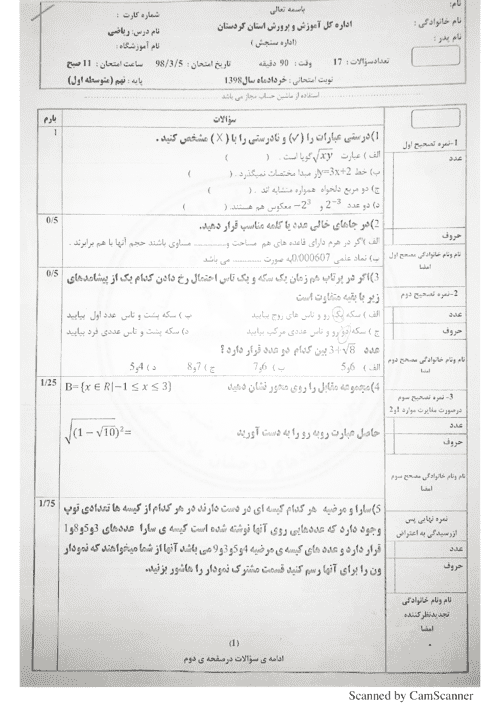 باسمه تعالی
اداره کل آموزش و پرورش استان کردستان
(اداره سنجش)
نام:
نام خانوادگی :
نام پدر :
شماره کارت :
نام درس: ریاضی
نام آموزشگاه:
تعدادسوالات : 17 وقت : 90 دقیقه تاریخ امتحان : 98/3/5 ساعت امتحان : 11 صبح
نوبت امتحانی : خردادماه سال1398 پایه : نهم (متوسطه اول)
استفاده از ماشین حساب مجاز می باشد
سؤالات
بارم
1)درستی عبارات را (✓) و نادرستی را با (X) مشخص کنید .
1
الف ) عبارت √xy گویا است . ( )
ب) خط y=3x+2 از مبدا مختصات نمیگذرد . ( )
ج) دو مربع دلخواه همواره متشابه اند . ( )
د) دو عدد 2⁻³ و -2³ معکوس هم هستند. ( )
2)در جاهای خالی عدد یا کلمه مناسب قرار دهید.
0/5
الف )اگر در هرم دارای قاعده های هم مساحت و............ مساوی باشند حجم آنها با هم برابرند .
ب) نماد علمی 0,000607 به صورت ............ می باشد
3)اگر در پرتاب هم زمان یک سکه و یک تاس احتمال رخ دادن کدام یک از پیشامدهای
0/5
زیر با بقیه متفاوت است
الف ) سکه رو و تاس های زوج بیایید ب ) سکه پشت و تاس عدد اول بیایید
ج ) سکه رو و تاس عددی مرکب بیایید د) سکه پشت و تاس عددی فرد بیایید
عدد 3+√8 بین کدام دو عدد قرار دارد ؟
الف ) 5و6 ب ) 6و7 ج ) 7و8 د ) 4و5
4)مجموعه مقابل را روی محور نشان دهید B={x ∈ R|−1 ≤ x ≤ 3}
1/25
حاصل عبارت روبه رو را به دست آورید √(1 − √10)²=
5)سارا و مرضیه هر کدام کیسه ای در دست دارند در هر کدام از کیسه ها تعدادی توپ
1/75
وجود دارد که عددهایی روی آنها نوشته شده است کیسه ی سارا عددهای 3و5و8و1
قرار دارد و عدد های کیسه ی مرضیه 4و5و3و9 می باشد آنها از شما میخواهند که نمودار
ون را برای آنها رسم کنید قسمت مشترک نمودار را هاشور بزنید.
(1)
ادامه ی سؤالات درصفحه ی دوم
1-نمره تصحیح اول
عدد
حروف
نام ونام خانوادگی مصحح اول
امضا
2-نمره تصحیح دوم
عدد
حروف
نام ونام خانوادگی مصحح دوم
امضا
3- نمره تصحیح سوم
درصورت مغایرت موارد 1و2
عدد
حروف
نام ونام خانوادگی مصحح سوم
امضا
نمره نهایی پس
ازرسیدگی به اعتراض
عدد
حروف
نام ونام خانوادگی
تجدیدنظرکننده
امضا
Scanned by CamScanner